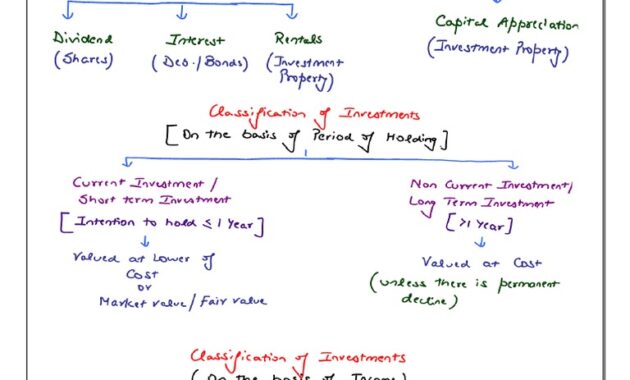 Dividend
(Shares)
Interest
(Deb./Bonds)
Rentals
(Investment
Property)
Capital Appreciation
(Investment Property)
Classification of Investments
[On the basis of Period of Holding]
Current Investment/
Short term Investment
[Intention to hold ≤ 1 Year]
Valued at Lower of
Cost
or
Market value/Fair value
Non Current Investment/
Long Term Investment
[>1 Year]
Valued at Cost
(unless there is permanent
decline)
Classification of Investments
(On the basis of Income)